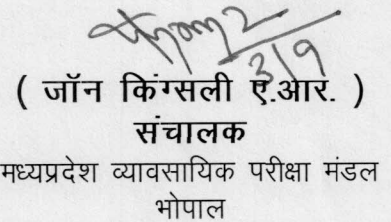 3/9
( जॉन किंग्सली ए.आर. )
संचालक
मध्यप्रदेश व्यावसायिक परीक्षा मंडल
भोपाल